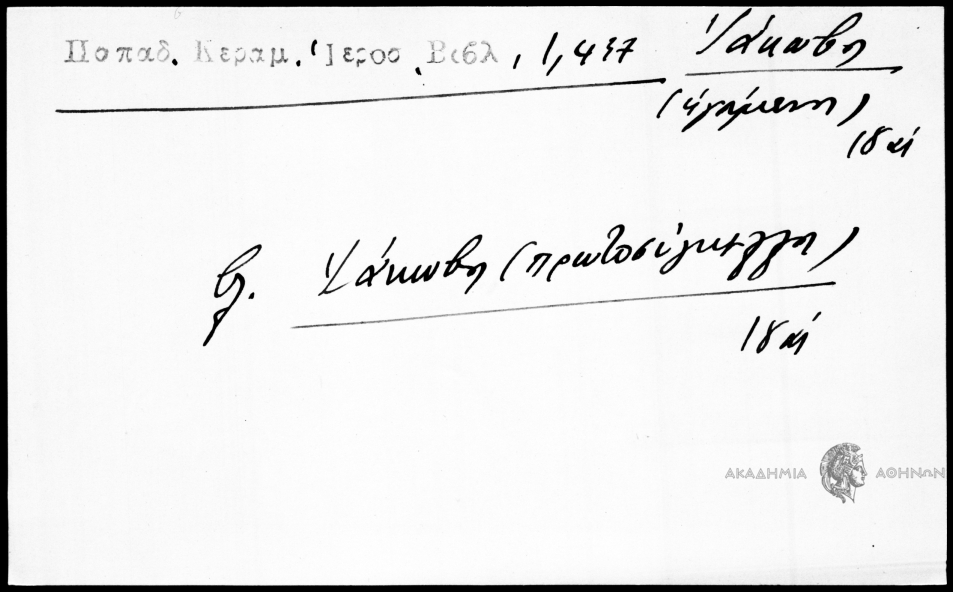 Παπαδ. Κεραμ. Ἱεροσ. Βιβλ, 1, 437 Ἰάκωβος
(ἡγούμενος)
18 αἰ
βλ. Ἰάκωβος (πρωτοσύγκελλος)
18 αἰ
ΑΚΑΔΗΜΙΑ ΑΘΗΝΩΝ